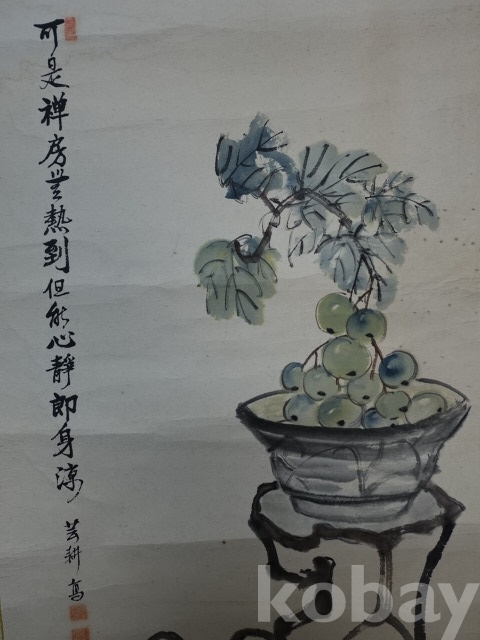 可是禅房無熱到但能心靜即身涼
芸耕寫
kobay